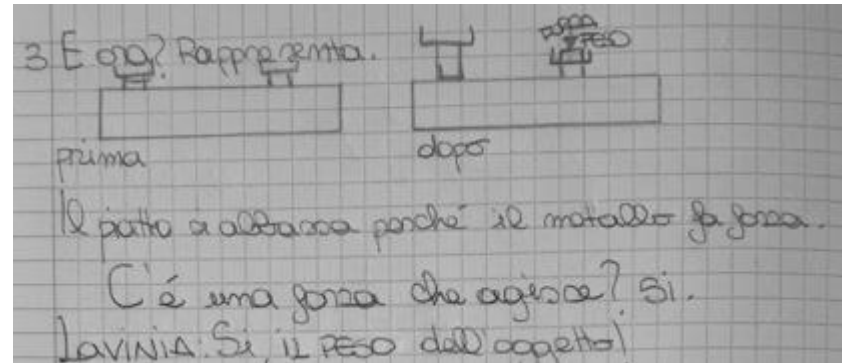 3 E ora? Rappresenta.
forza
PESO
prima
dopo
Il piatto si abbassa perché il metallo fa forza.
C'è una forza che agisce? Si.
LAVINIA: Si, il PESO dell'oggetto!